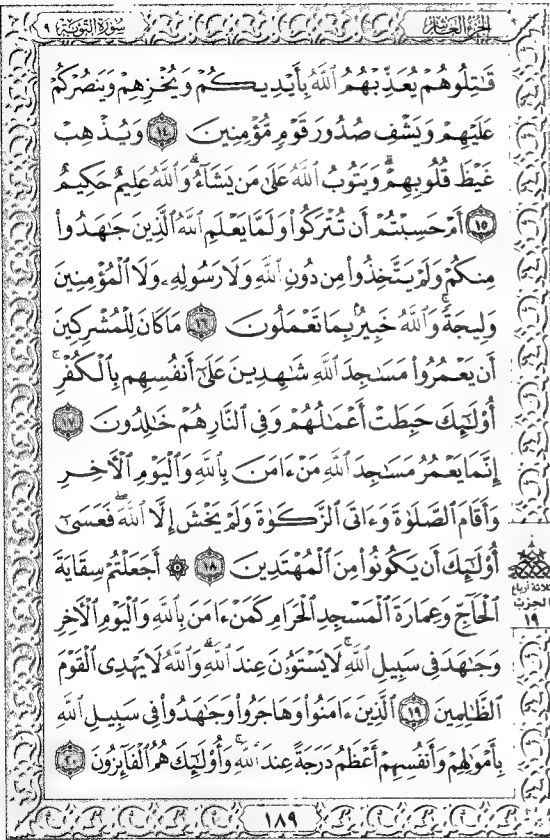 سورة التوبة ٩
الجزء العاشر
قَٰتِلُوهُمْ يُعَذِّبْهُمُ ٱللَّهُ بِأَيْدِيكُمْ وَيُخْزِهِمْ وَيَنصُرْكُمْ
عَلَيْهِمْ وَيَشْفِ صُدُورَ قَوْمٍ مُّؤْمِنِينَ ١٤ وَيُذْهِبْ
غَيْظَ قُلُوبِهِمْ ۗ وَيَتُوبُ ٱللَّهُ عَلَىٰ مَن يَشَآءُ ۗ وَٱللَّهُ عَلِيمٌ حَكِيمٌ
١٥ أَمْ حَسِبْتُمْ أَن تُتْرَكُوا۟ وَلَمَّا يَعْلَمِ ٱللَّهُ ٱلَّذِينَ جَٰهَدُوا۟
مِنكُمْ وَلَمْ يَتَّخِذُوا۟ مِن دُونِ ٱللَّهِ وَلَا رَسُولِهِۦ وَلَا ٱلْمُؤْمِنِينَ
وَلِيجَةً ۚ وَٱللَّهُ خَبِيرٌۢ بِمَا تَعْمَلُونَ ١٦ مَا كَانَ لِلْمُشْرِكِينَ
أَن يَعْمُرُوا۟ مَسَٰجِدَ ٱللَّهِ شَٰهِدِينَ عَلَىٰٓ أَنفُسِهِم بِٱلْكُفْرِ ۚ
أُو۟لَٰٓئِكَ حَبِطَتْ أَعْمَٰلُهُمْ وَفِى ٱلنَّارِ هُمْ خَٰلِدُونَ ١٧
إِنَّمَا يَعْمُرُ مَسَٰجِدَ ٱللَّهِ مَنْ ءَامَنَ بِٱللَّهِ وَٱلْيَوْمِ ٱلْـَٔاخِرِ
وَأَقَامَ ٱلصَّلَوٰةَ وَءَاتَى ٱلزَّكَوٰةَ وَلَمْ يَخْشَ إِلَّا ٱللَّهَ ۖ فَعَسَىٰٓ
أُو۟لَٰٓئِكَ أَن يَكُونُوا۟ مِنَ ٱلْمُهْتَدِينَ ١٨ ۞ أَجَعَلْتُمْ سِقَايَةَ
ٱلْحَآجِّ وَعِمَارَةَ ٱلْمَسْجِدِ ٱلْحَرَامِ كَمَنْ ءَامَنَ بِٱللَّهِ وَٱلْيَوْمِ ٱلْـَٔاخِرِ
وَجَٰهَدَ فِى سَبِيلِ ٱللَّهِ ۚ لَا يَسْتَوُۥنَ عِندَ ٱللَّهِ ۗ وَٱللَّهُ لَا يَهْدِى ٱلْقَوْمَ
ٱلظَّٰلِمِينَ ١٩ ٱلَّذِينَ ءَامَنُوا۟ وَهَاجَرُوا۟ وَجَٰهَدُوا۟ فِى سَبِيلِ ٱللَّهِ
بِأَمْوَٰلِهِمْ وَأَنفُسِهِمْ أَعْظَمُ دَرَجَةً عِندَ ٱللَّهِ ۚ وَأُو۟لَٰٓئِكَ هُمُ ٱلْفَآئِزُونَ ٢٠
ثلاثة أرباع
الحزب
١٩
١٨٩